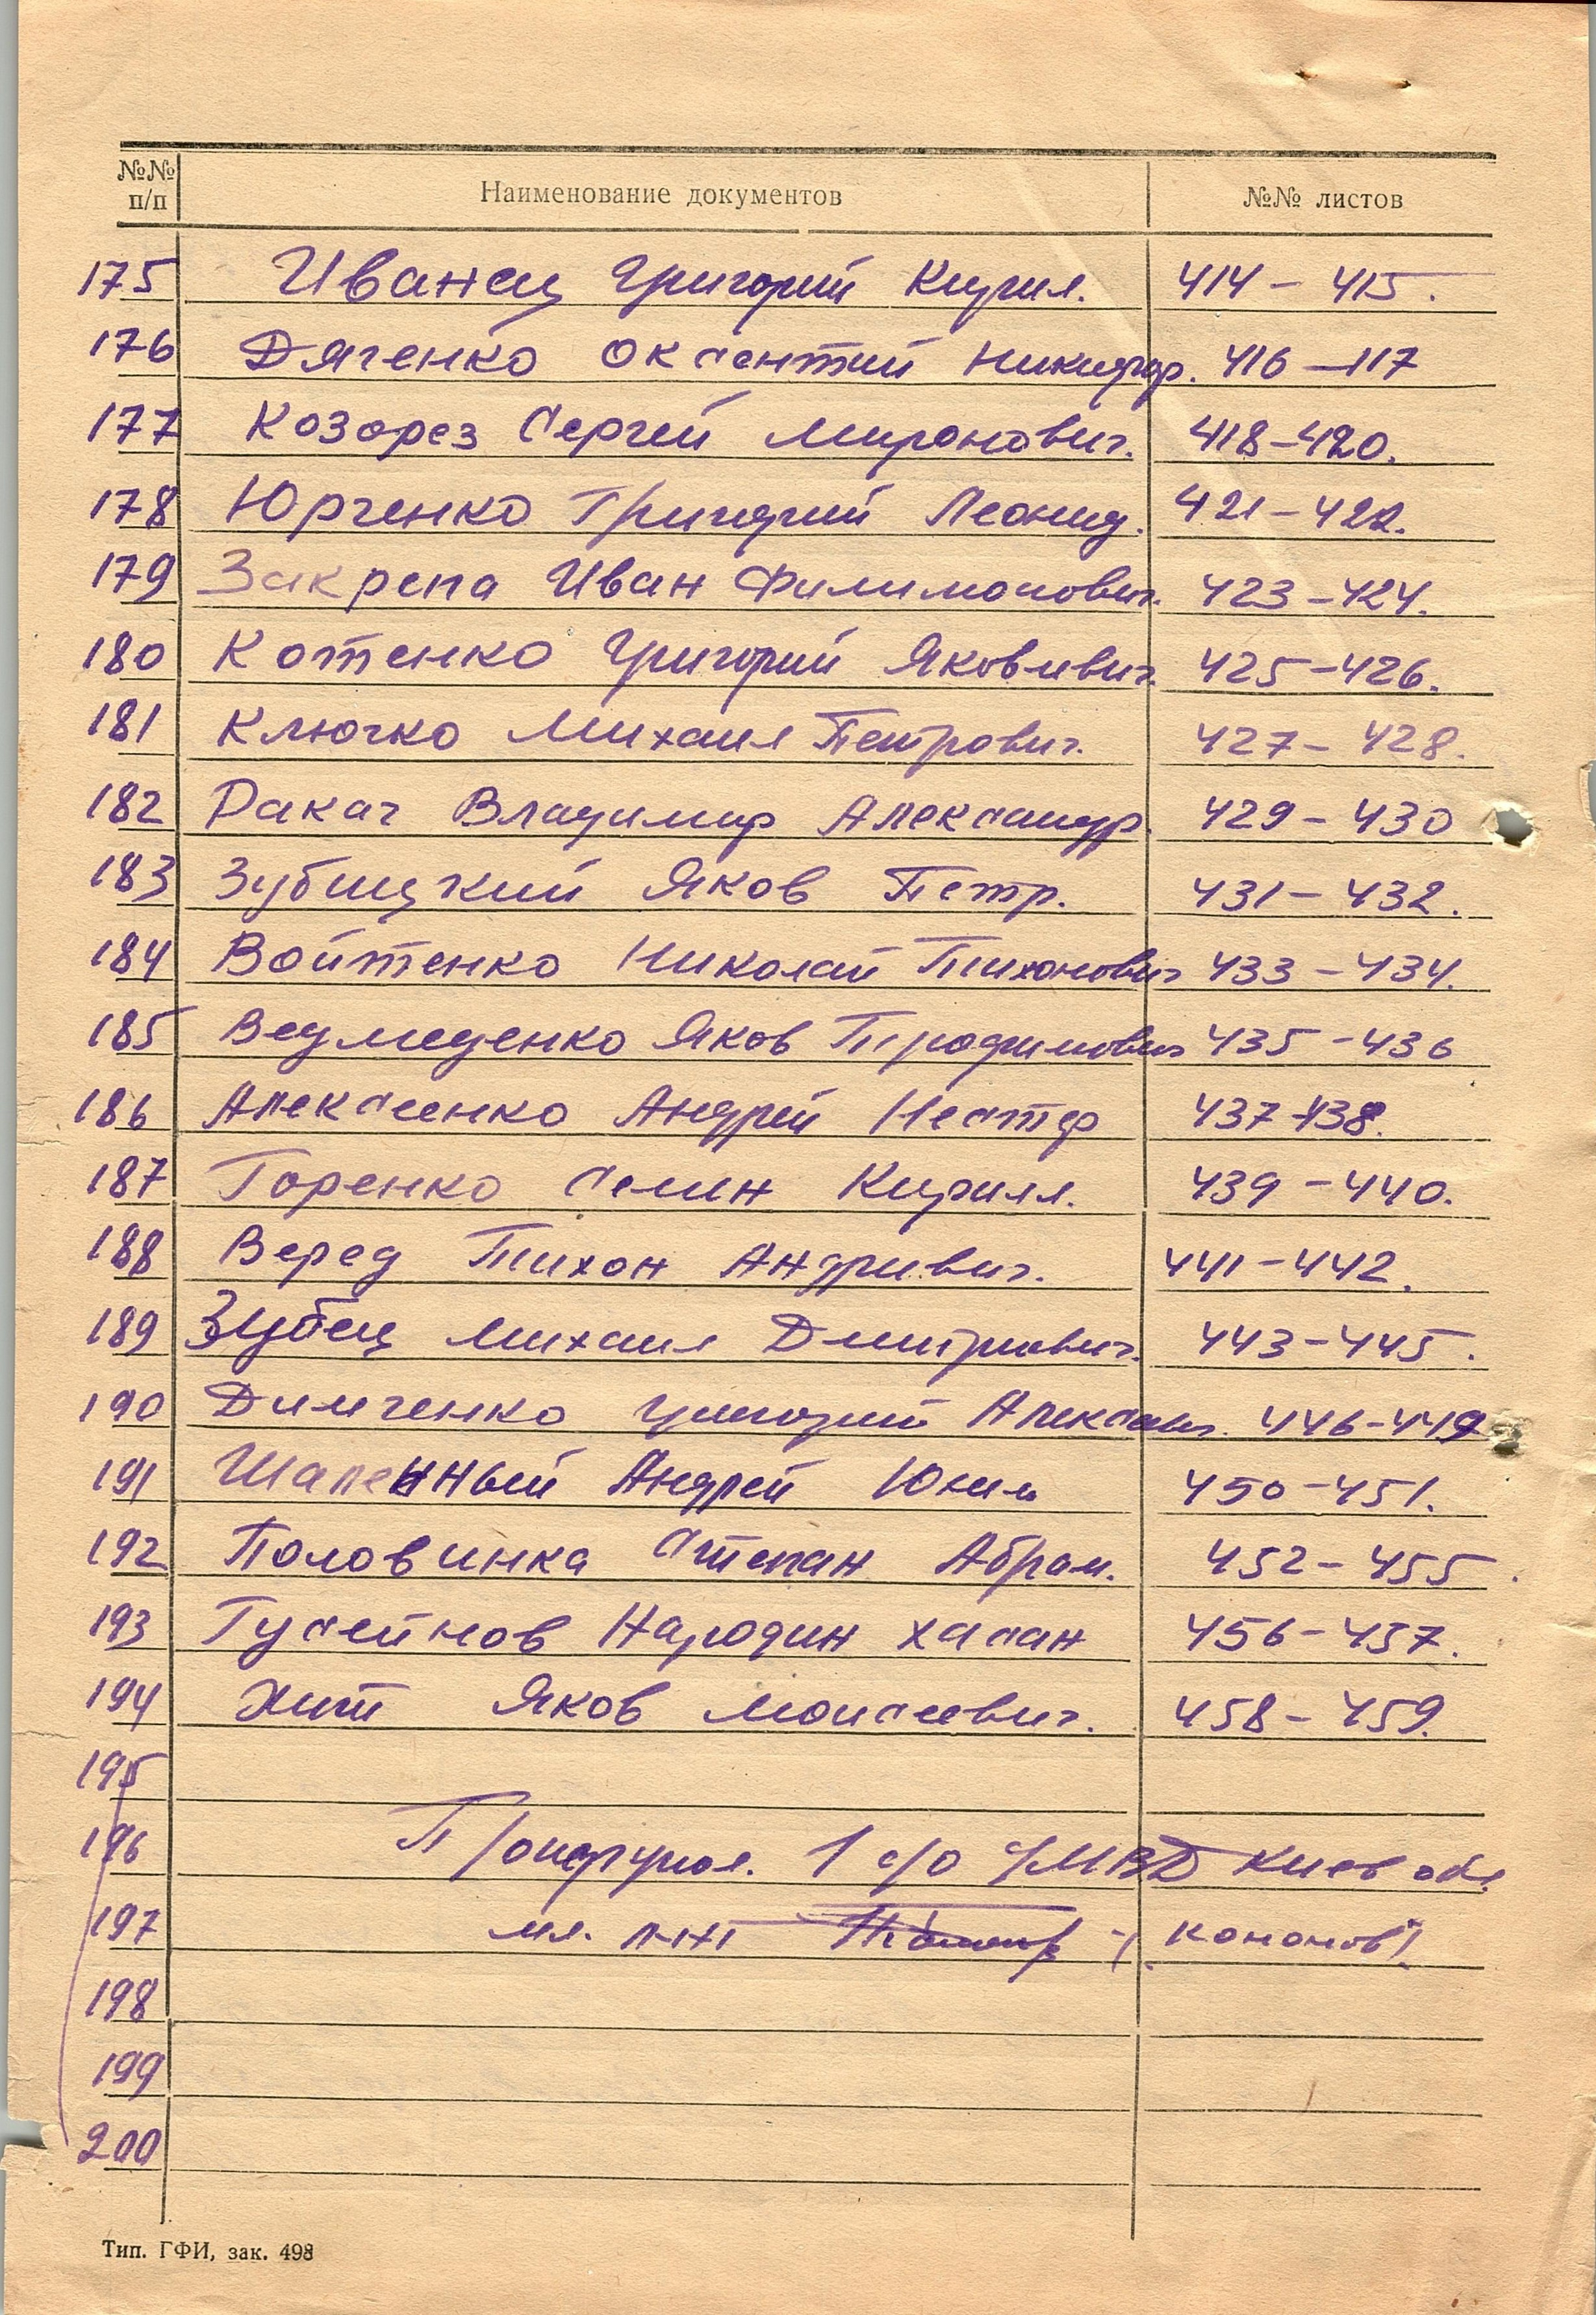 №№ п/п Наименование документов №№ листов
175 Иванец Григорий Кирил. 414 – 415.
176 Дяченко Оксентий Никифор. 416 – 417
177 Козорез Сергей Миронович. 418 – 420.
178 Юрченко Григорий Леонид. 421 – 422.
179 Закрепа Иван Филимонович. 423 – 424.
180 Котенко Григорий Яковлевич. 425 – 426.
181 Ключко Михаил Петрович. 427 – 428.
182 Ракач Владимир Александр. 429 – 430
183 Зубицкий Яков Петр. 431 – 432.
184 Войтенко Николай Тихонович 433 – 434.
185 Ведмеденко Яков Трофимович 435 – 436
186 Алексеенко Андрей Нестер 437 – 438.
187 Горенко Семен Кирилл. 439 – 440.
188 Веред Тихон Андриевич. 441 – 442.
189 Зубец Михаил Дмитриевич. 443 – 445.
190 Димченко Григорий 446 – 449
191 Шаленный Андрей 450 – 451.
192 Половинка Степан Абрам. 452 – 455.
193 Гусейнов Хасан 456 – 457.
194 Яков Моисеевич. 458 – 459.
195
196 1 с/о УМВД Киев обл.
197 мл. л-нт (Кононов).
198
199
200
Тип. ГФИ, зак. 498